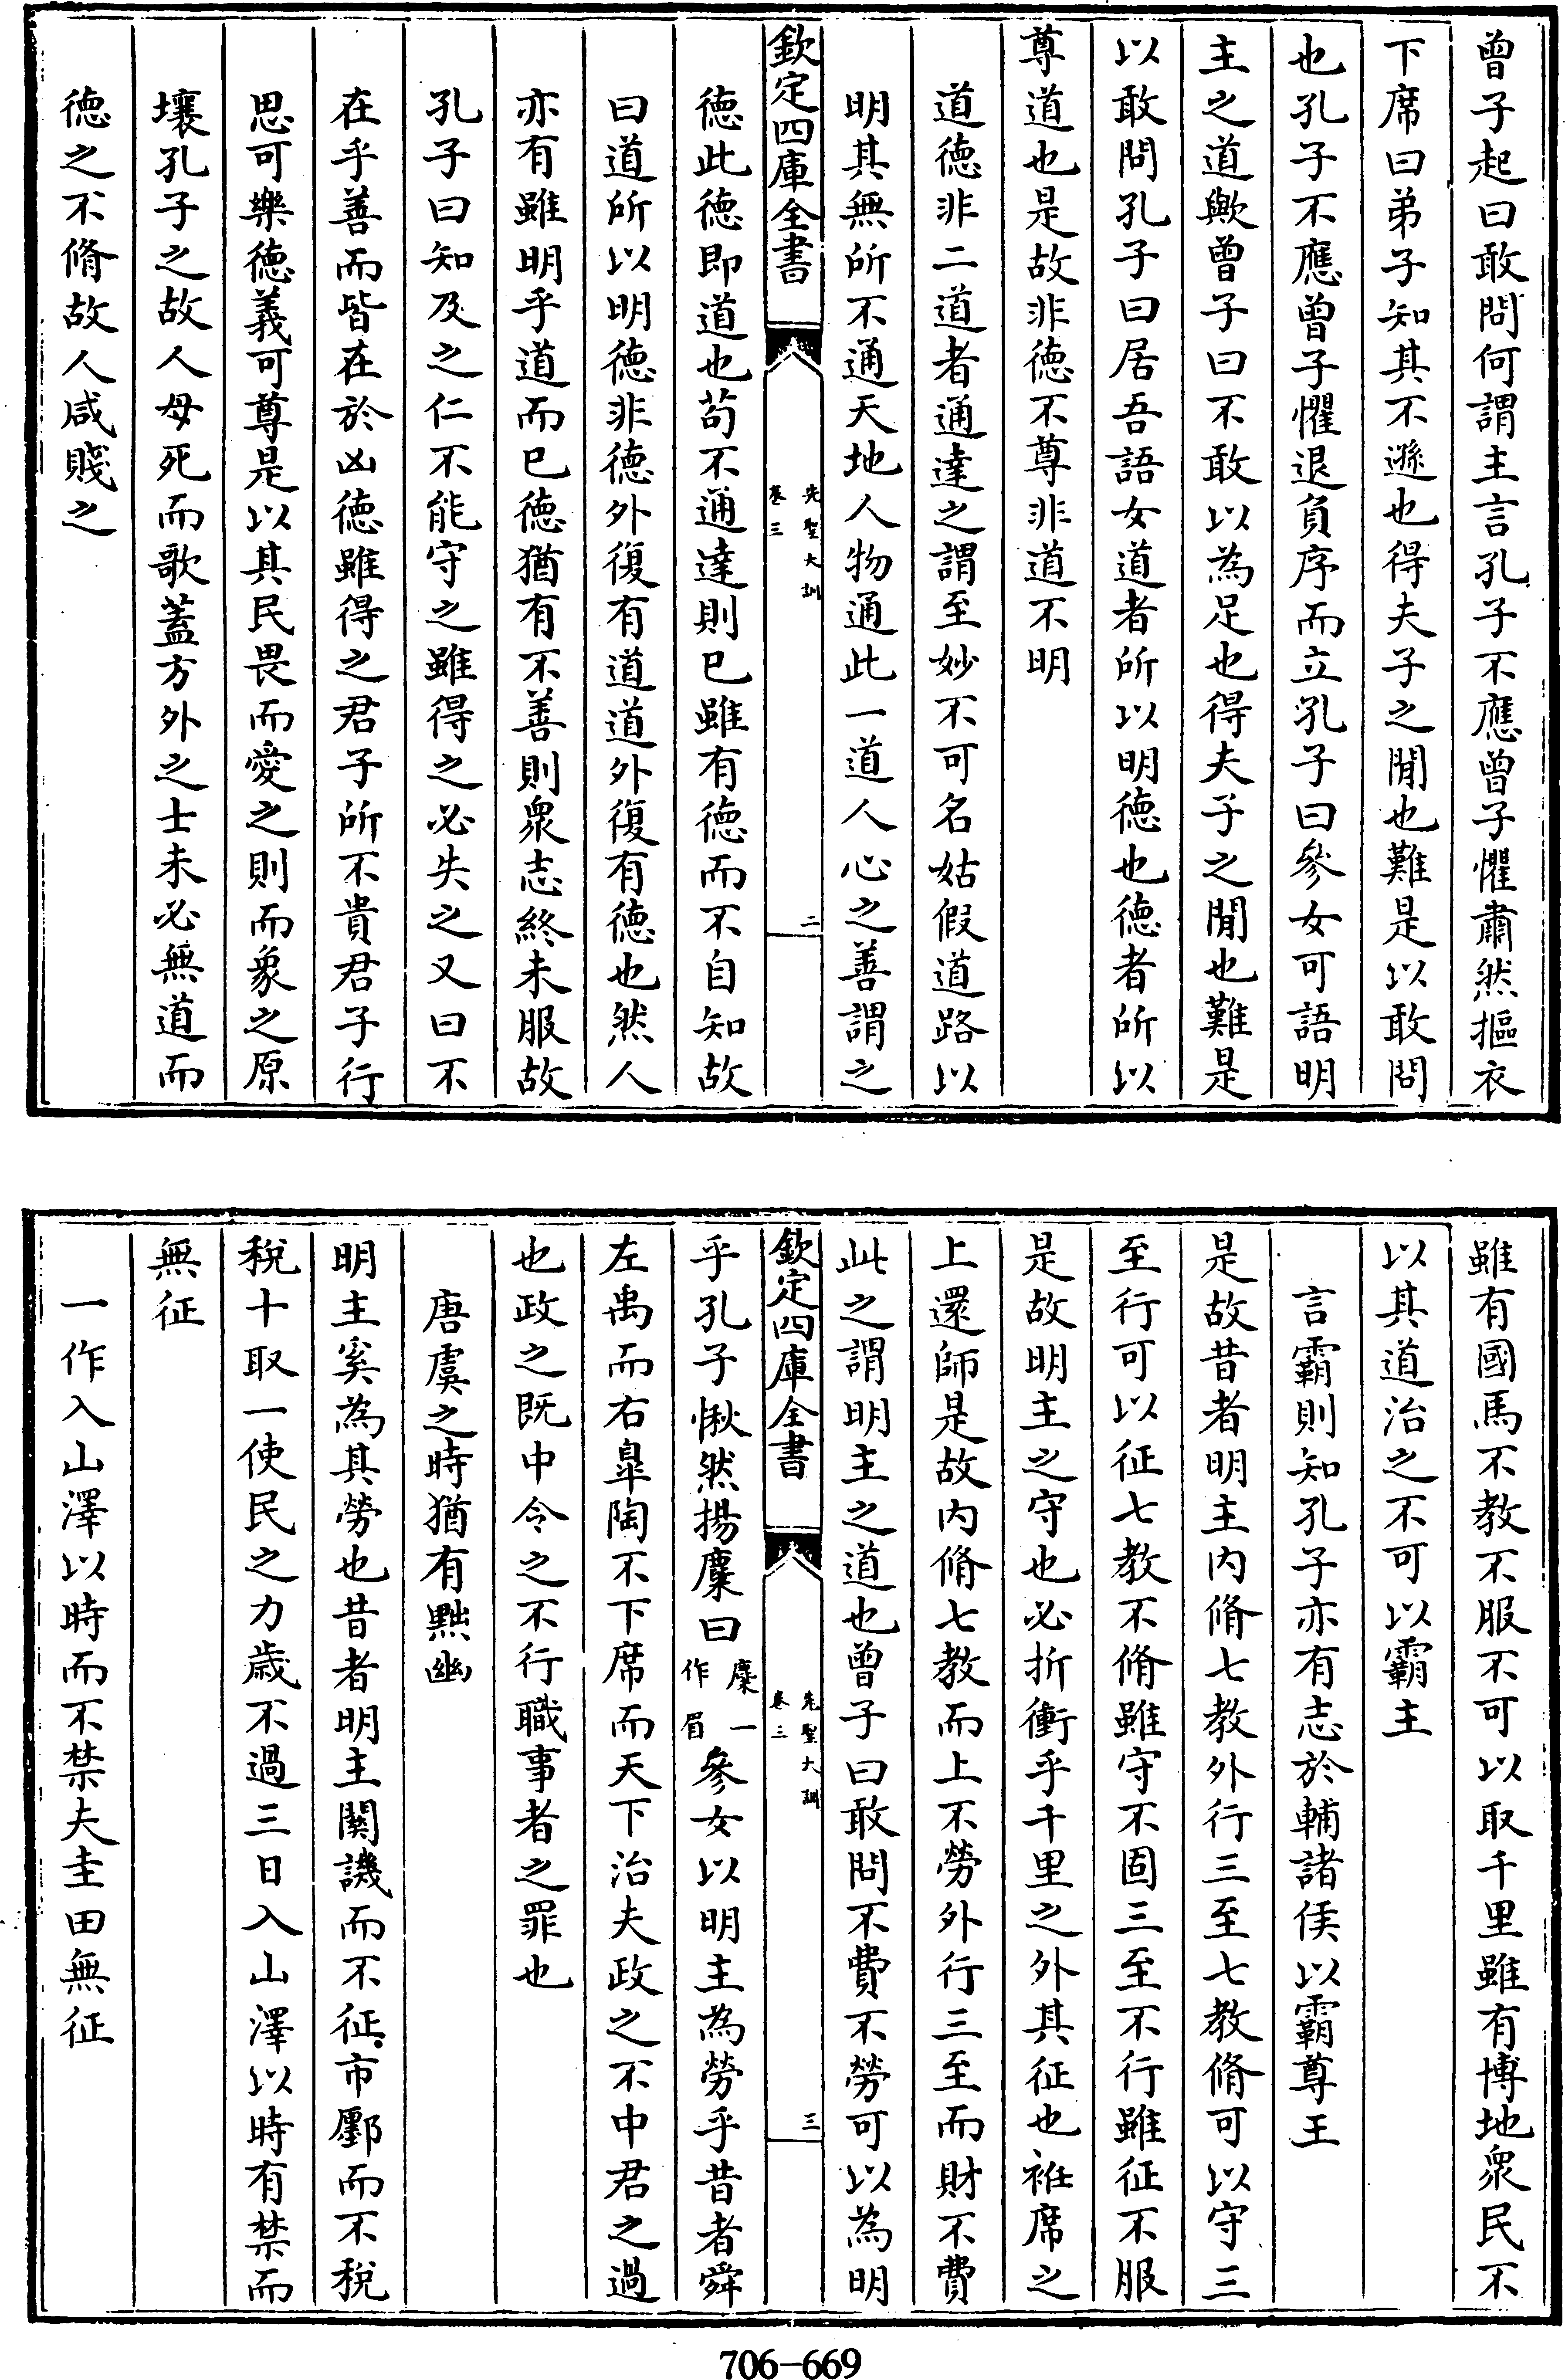 曾子起曰敢問何謂主言孔子不應曾子懼肅然摳衣
下席曰弟子知其不遜也得夫子之閒也難是以敢問
也孔子不應曾子懼退負序而立孔子曰參女可語明
主之道歟曾子曰不敢以為足也得夫子之閒也難是
以敢問孔子曰居吾語女道者所以明德也德者所以
尊道也是故非德不尊非道不明
道德非二道者通達之謂至妙不可名姑假道路以
明其無所不通天地人物通此一道人心之善謂之
欽定四庫全書
先聖大訓
卷三
二
德此德即道也茍不通達則已雖有德而不自知故
曰道所以明德非德外復有道道外復有德也然人
亦有雖明乎道而已德猶有不善則衆志終未服故
孔子曰知及之仁不能守之雖得之必失之又曰不
在乎善而皆在於凶德雖得之君子所不貴君子行
思可樂德義可尊是以其民畏而愛之則而象之原
壤孔子之故人母死而歌蓋方外之士未必無道而
德之不脩故人咸賤之
雖有國馬不教不服不可以取千里雖有博地衆民不
以其道治之不可以霸主
言霸則知孔子亦有志於輔諸侯以霸尊王
是故昔者明主内脩七教外行三至七教脩可以守三
至行可以征七教不脩雖守不固三至不行雖征不服
是故明主之守也必折衝乎千里之外其征也袵席之
上還師是故内脩七教而上不勞外行三至而財不費
此之謂明主之道也曾子曰敢問不費不勞可以為明
欽定四庫全書
先聖大訓
卷三
三
乎孔子愀然揚麋曰麋一作眉參女以明主為勞乎昔者舜
左禹而右臯陶不下席而天下治夫政之不中君之過
也政之既中令之不行職事者之罪也
唐虞之時猶有黜幽
明主奚為其勞也昔者明主關譏而不征市鄽而不稅
稅十取一使民之力歲不過三日入山澤以時有禁而
無征
一作入山澤以時而不禁夫圭田無征
706-669